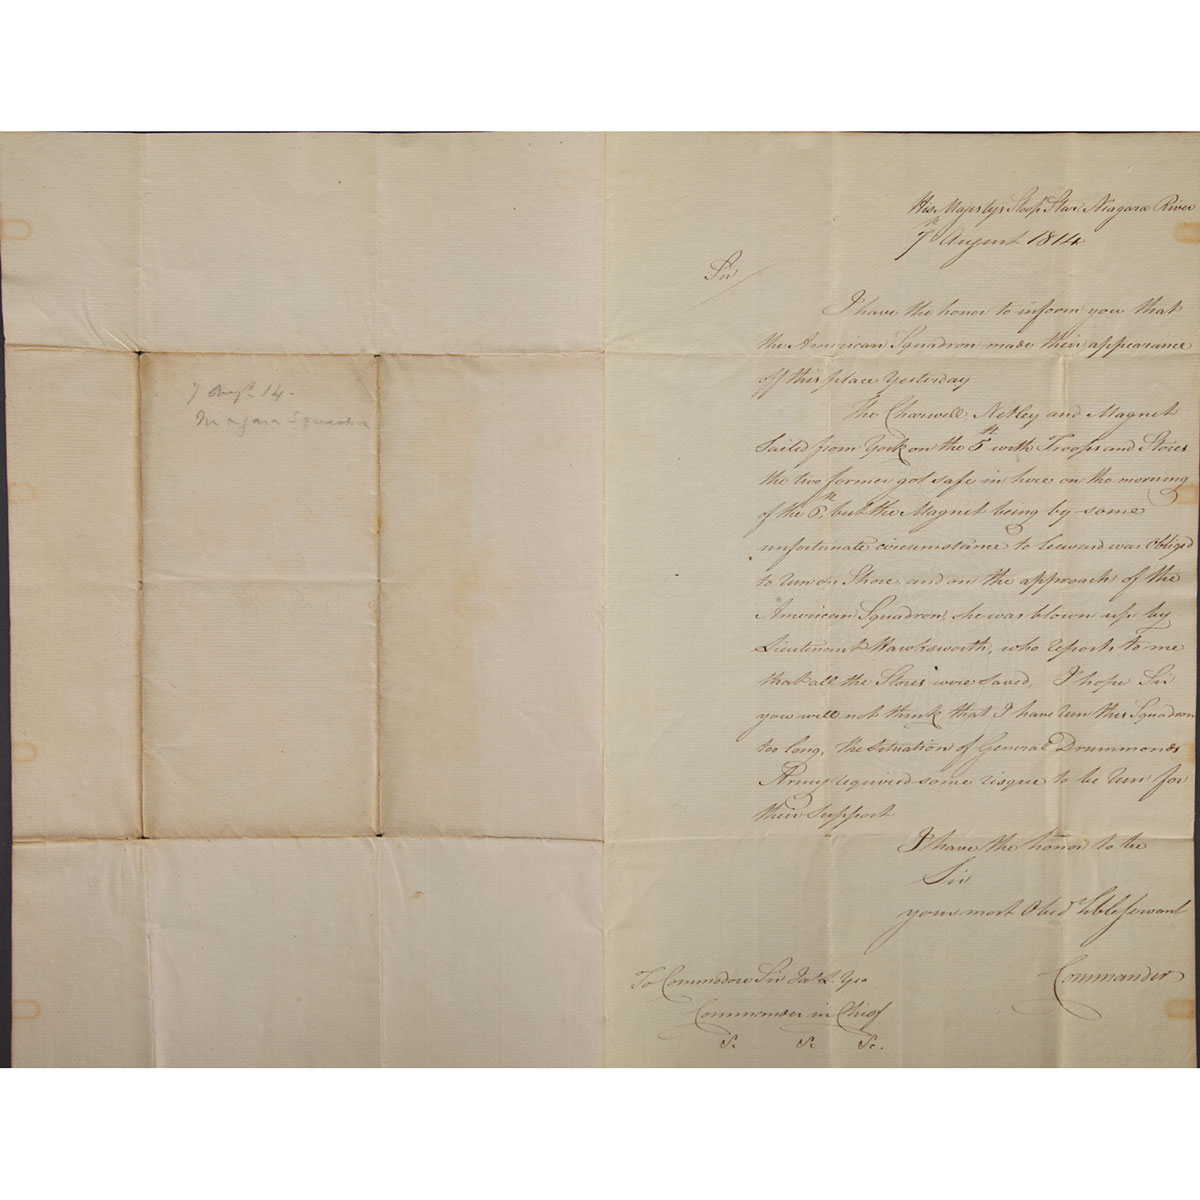 7 Augt. 14.
Niagara Squadron
His Majestys Sloop Star Niagara River
7th August 1814
Sir
I have the honor to inform you that
the American Squadron made their appearance
off this place Yesterday
The Charwell, Netley and Magnet
Sailed from York on the 5th with Troops and Stores
the two former got safe in here on the morning
of the 6th, but the Magnet being by some
unfortunate circumstance to Leeward was obliged
to run on Shore, and on the approach of the
American Squadron, she was blown up by
Lieutenant Hawksworth, who reports to me
that all the Stores were saved, I hope Sir
you will not think that I have run this Squadron
too long, the situation of General Drummonds
Army required some risque to be run for
their support
I have the honor to be
Sir
your most Obedt. Hble Servant
Commander
To Commodore Sir Jas. L. Yeo
Commander in Chief
&c &c &c.